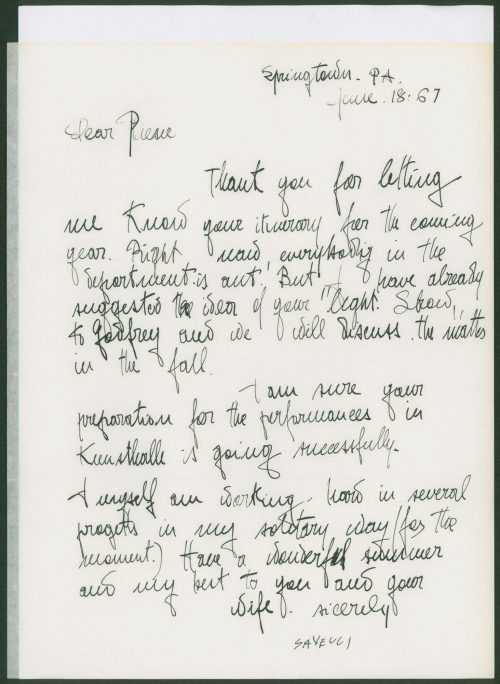 Springtown. PA.
June. 18:67
Dear Piene
Thank you for letting
me know your itinerary for the coming
year. Right now everybody in the
department is out. But I have already
suggested the idea of your "Light Show"
to Godfrey and we will discuss the matter
in the fall.
I am sure your
preparation for the performances in
Kunsthalle is going successfully.
I myself am working hard in several
progetts in my solitary way (for the
moment.) Have a wonderful summer
and my best to you and your
wife. sicerely
SAVELLI